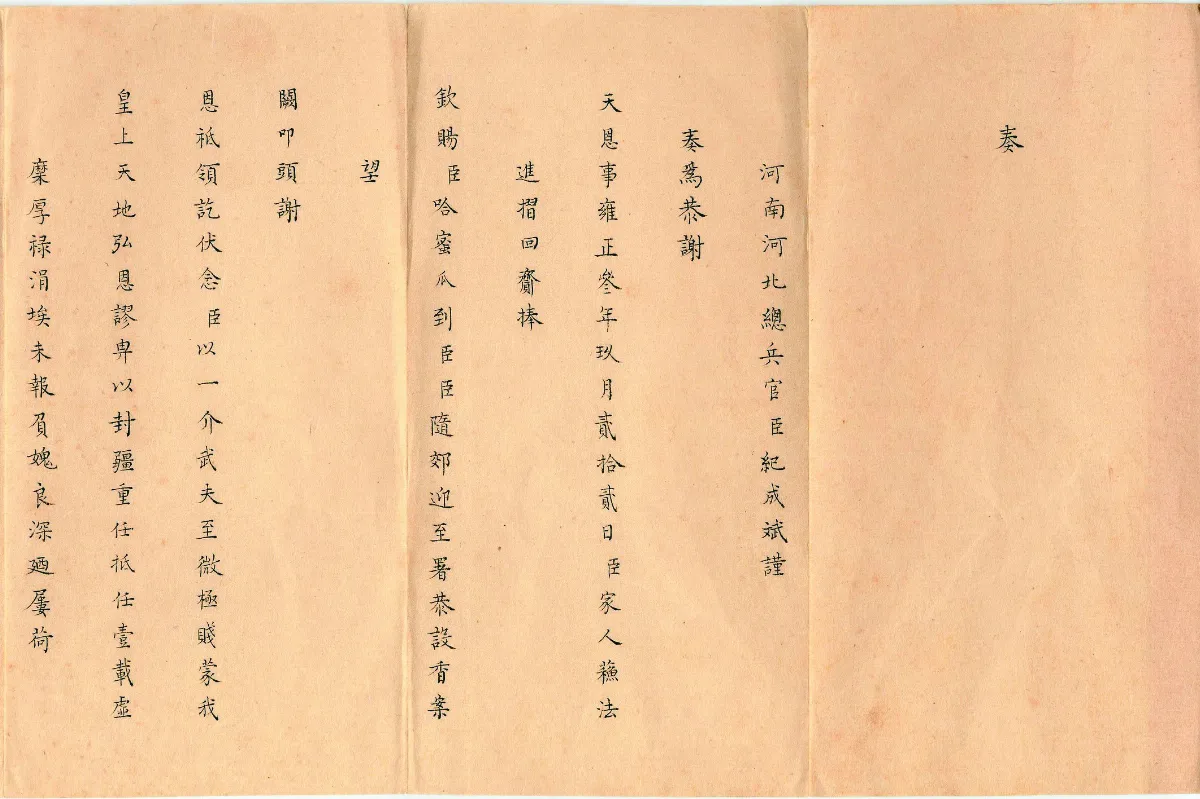 奏
河南河北總兵官臣紀成斌謹
奏爲恭謝
天恩事雍正叄年玖月貳拾貳日臣家人蘓法
進摺回齎捧
欽賜臣哈蜜瓜到臣臣隨郊迎至署恭設香案
望
闕叩頭謝
恩祗領訖伏念臣以一介武夫至微極賤蒙我
皇上天地弘恩謬畀以封疆重任抵任壹載虛
糜厚祿涓埃未報負媿良深廼屢荷